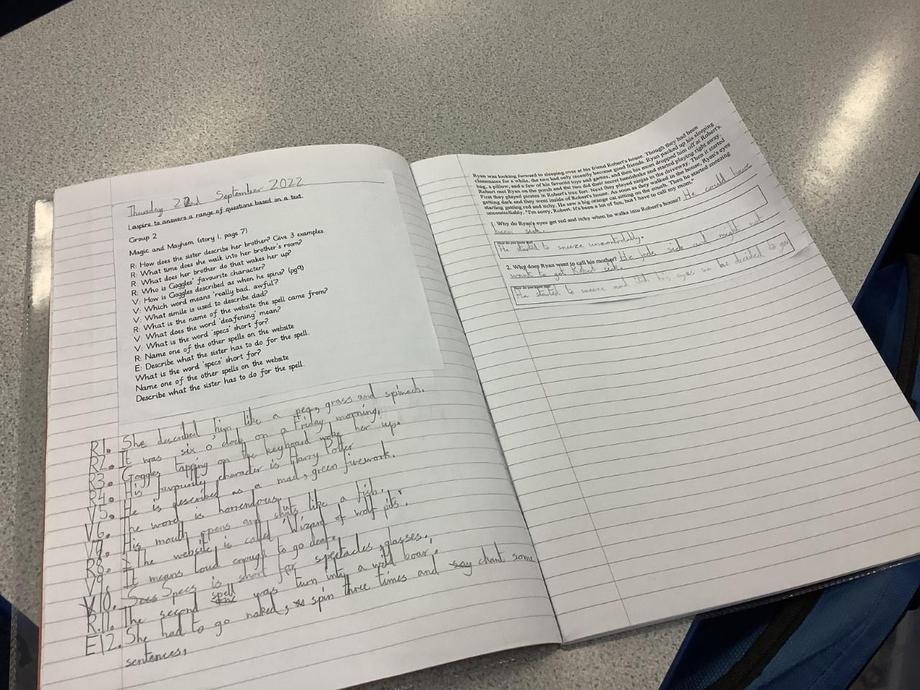 Thursday 22nd September 2022
I aspire to answers a range of questions based on a text.
Group 2
Magic and Mayham (story 1, page 7)
R: How does the sister describe her brother? Give 3 examples.
R: What time does she walk into her brother's room?
R: What does her brother do that wakes her up?
R: Who is Goggles' favourite character?
V: How is Goggles described as when he spins? (pg9)
V: Which word means 'really bad, awful'?
V: What simile is used to describe dad?
R: What is the name of the website the spell came from?
V: What does the word 'deafening' mean?
V: What is the word 'specs' short for?
R: Name one of the other spells on the website
E: Describe what the sister has to do for the spell.
What is the word 'specs' short for?
Name one of the other spells on the website
Describe what the sister has to do for the spell.
R1. She described him like a peg, grass and spinach.
R2. It was six o'clock on a Friday morning.
R3. Goggles tapping on the keyboard woke her up.
R4. His favourite character is Harry Potter
V5. He is described as a mad, green firework.
V6. The word is horrendous.
V7. His mouth opens and shuts like a fish.
R8. The website is called 'Wizard of wolf pits'.
V9. It means loud enough to go deaf.
V10. Specs is short for spectacles, glasses.
R.11. The second spell was turn into a wild boar.
E12. She had to go naked, spin three times and chant some
sentences.
Ryan was looking forward to sleeping over at his friend Robert's house. Though they had been
classmates for a while, the two had only recently become good friends. Ryan packed up his sleeping
bag, a pillow, and a few of his favorite toys and games, and then his mom dropped him off at Robert's.
Robert met Ryan on the porch and the two did their secret handshake and started playing right away.
First they played pirates in Robert's tree fort. Next they played ninjas in the driveway. Then it started
getting dark and they went inside of Robert's house. As soon as they walked in the house, Ryan's eyes
starting getting red and itchy. He saw a big orange cat sitting on the couch. Then he started sneezing
uncontrollably. "I'm sorry, Robert. It's been a lot of fun, but I have to call my mom.
1. Why do Ryan's eyes get red and itchy when he walks into Robert's house? He could have
been sick.
How do you know this?
He started to sneeze uncontrollably.
2. Why does Ryan want to call his mother? He feels sick and might not
want to get Robert sick.
How do you know this?
He started to sneeze and itch his eyes so he decided to go